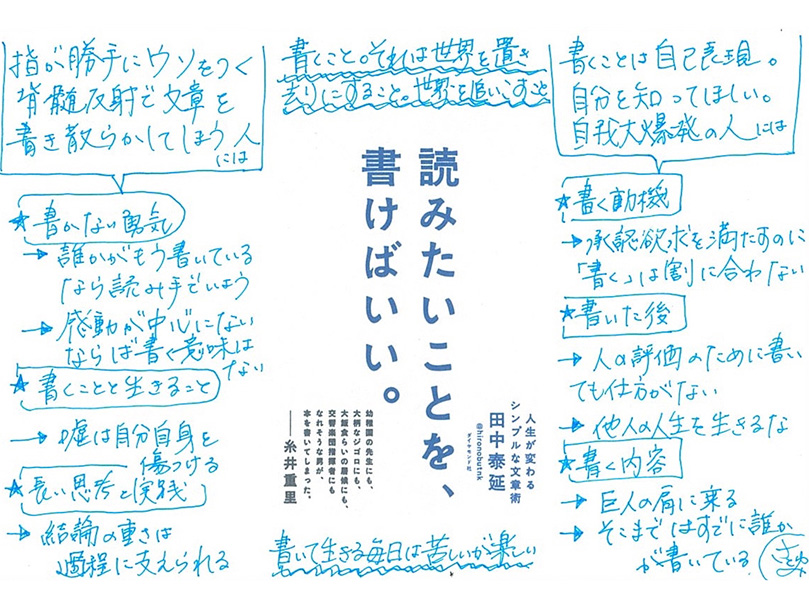 指が勝手にウソをつく
脊髄反射で文章を
書き散らかしてしまう人
には
★書かない勇気
→誰かがもう書いている
なら読み手でいよう
→感動が中心にない
ならば書く意味は
ない
★書くことと生きること
→嘘は自分自身を
傷つける
★長い思考と実践
→結論の重さは
過程に支えられる
書くこと。それは世界を置き
去りにすること。世界を追いこすこと
読みたいことを、
書けばいい。
人生が変わる
シンプルな文章術
田中泰延
@hironobutnk
ダイヤモンド社
幼稚園の先生にも、
大柄なジゴロにも、
大飯食らいの居候にも、
交響楽団指揮者にも
なれそうな男が、
本を書いてしまった。
——糸井重里
書いて生きる毎日は苦しいが楽しい
書くことは自己表現。
自分を知ってほしい。
自我大爆発の人には
★書く動機
→承認欲求を満たすのに
「書く」は割に合わない
★書いた後
→人の評価のために書い
ても仕方がない
→他人の人生を生きるな
★書く内容
→巨人の肩に乗る
→そこまではすでに誰か
が書いている